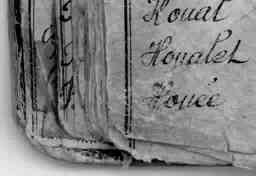 Houat
Houalet
Houée